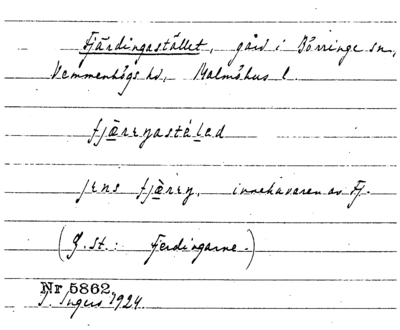 Fjärdingastället, gård i Börringe sn,
Vemmenhögs hd, Malmöhus l.
fjæryastáled
jens fjæry, innehavaren av Fj.
(G. st.: Fjerdingarne.)
Nr 5862.
J. Ingers 1924.